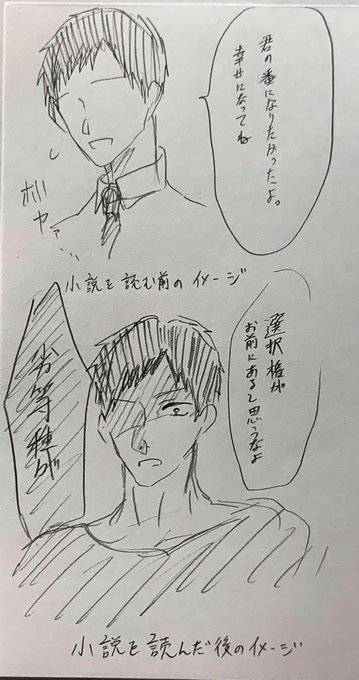 君の番になりたかったよ。
幸せになってね
ポヤァ…
小説を読む前のイメージ
選択権が
お前にあると思うなよ
劣等種が
小説を読んだ後のイメージ